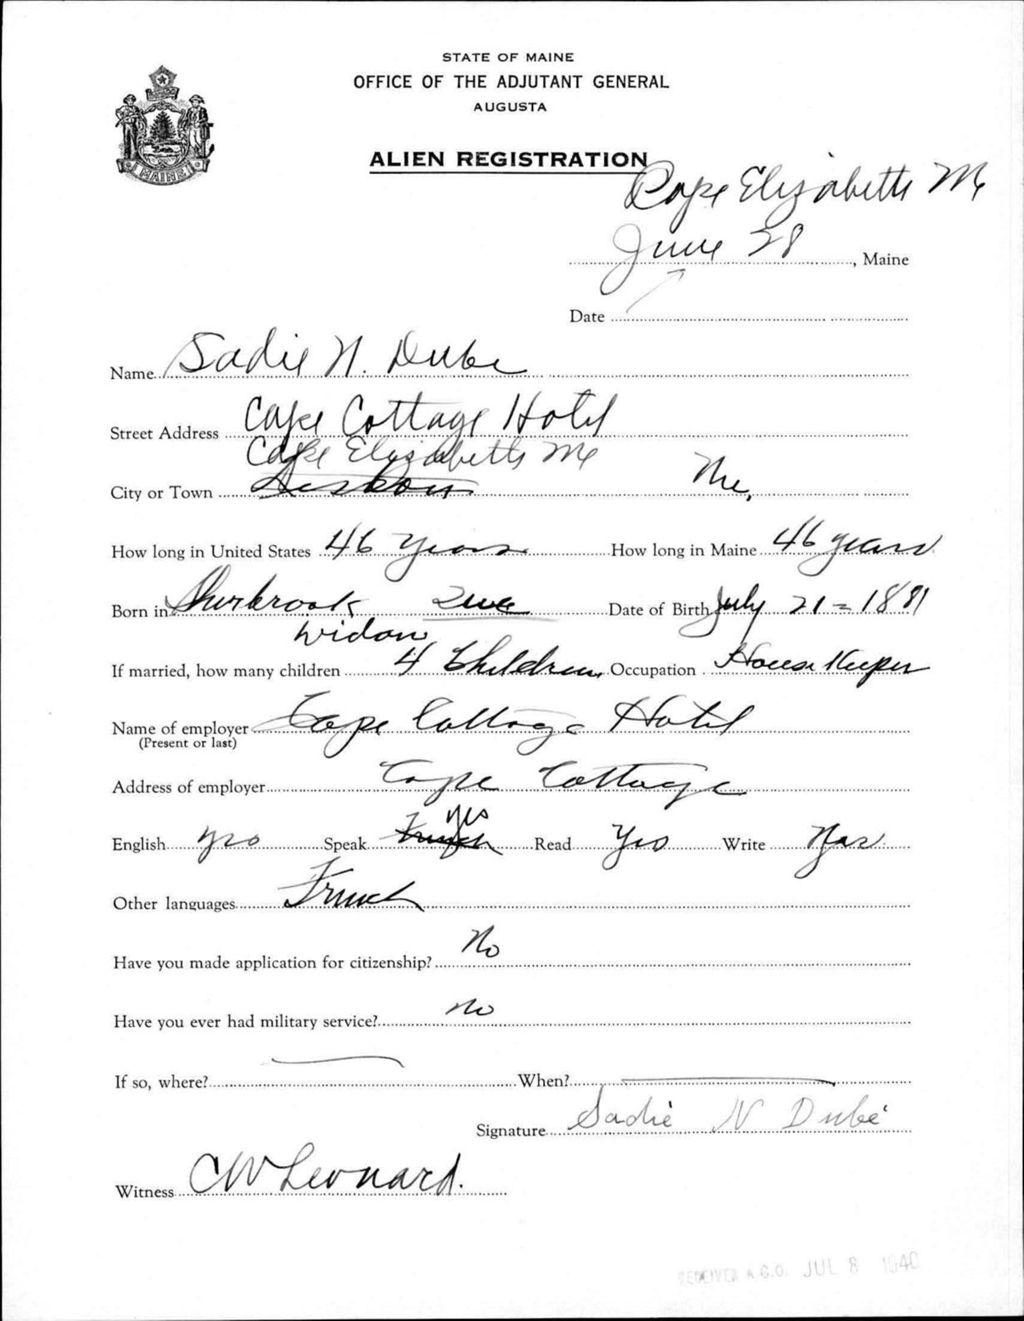 STATE OF MAINE
OFFICE OF THE ADJUTANT GENERAL
AUGUSTA
MAINE
ALIEN REGISTRATION
Cape Elizabeth Me
June 28, Maine
Date
Name Sadie N. Dube
Street Address Cape Cottage Hotel
Cape Elizabeth Me
City or Town Lisbon Me.
How long in United States 46 years How long in Maine 46 years
Born in Sherbrook Que Date of Birth July 21 = 1881
Widow
If married, how many children 4 Children Occupation House Keeper
Name of employer Cape Cottage Hotel
(Present or last)
Address of employer Cape Cottage
yes
English yes Speak French Read Yes Write Yes
Other languages French
Have you made application for citizenship? No
Have you ever had military service? no
If so, where? When?
Signature Sadie N Dubé
Witness CW Leonard.
RECEIVED A.G.O. JUL 8 1940